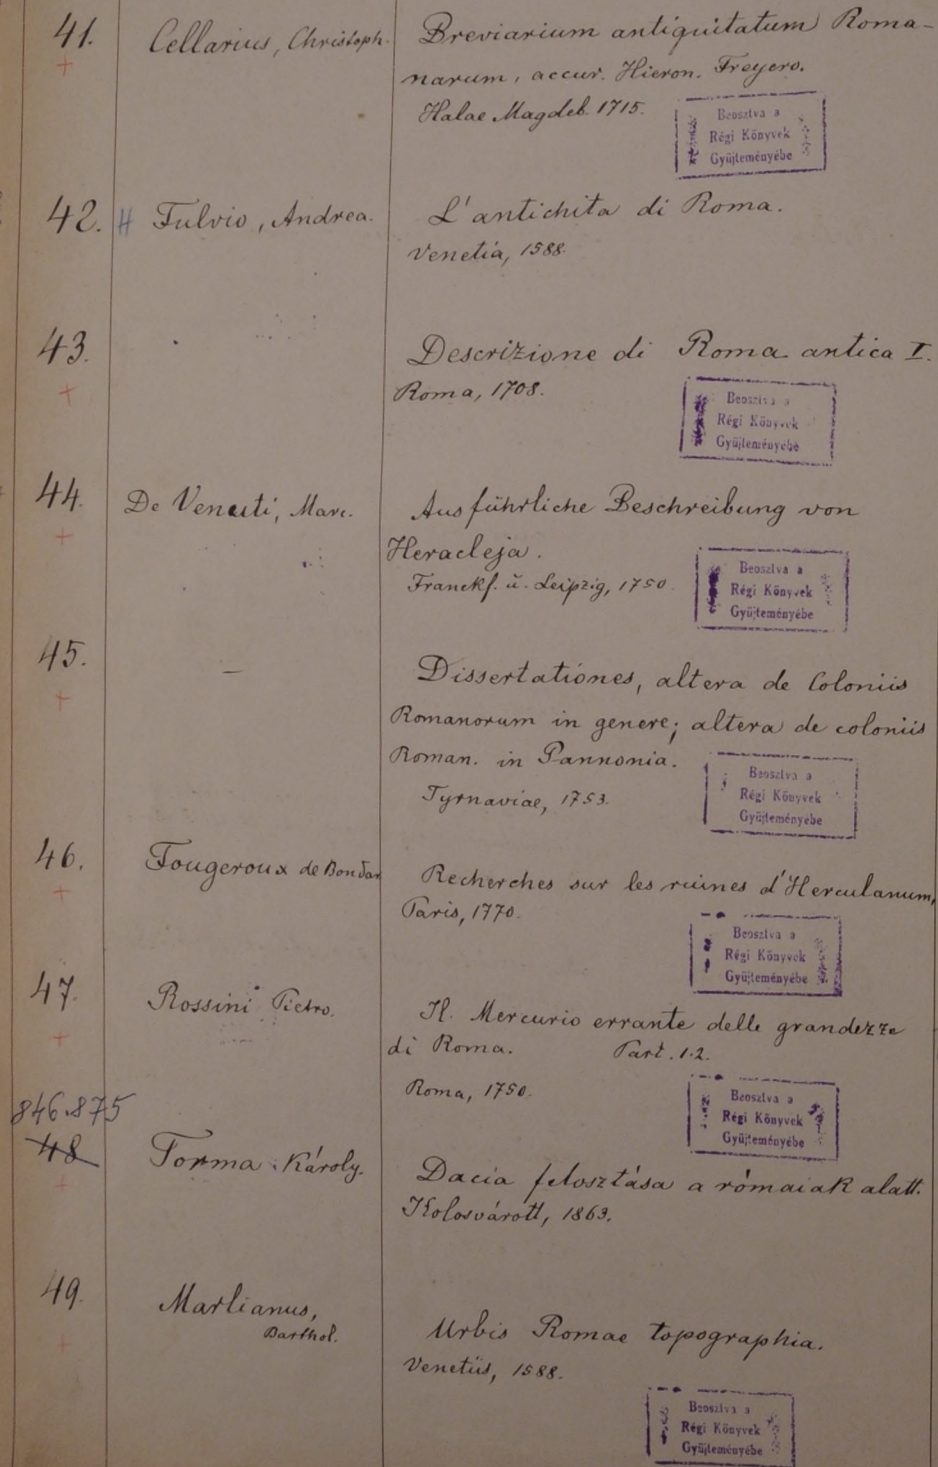 41. Cellarius, Christoph. Breviarium antiquitatum Roma-
+ narum, accur. Hieron. Freyero.
Halae Magdeb. 1715.
Beosztva a
Régi Könyvek
Gyüjteményébe
42. H Fulvio, Andrea. L'antichita di Roma.
Venetia, 1588.
43. Descrizione di Roma antica I.
+ Roma, 1708.
Beosztva a
Régi Könyvek
Gyüjteményébe
44. De Venuti, Marc. Ausführliche Beschreibung von
+ Heracleja.
Franckf. u. Leipzig, 1750.
Beosztva a
Régi Könyvek
Gyüjteményébe
45. — Dissertationes, altera de Coloniis
+ Romanorum in genere; altera de coloniis
Roman. in Pannonia.
Tyrnaviae, 1753.
Beosztva a
Régi Könyvek
Gyüjteményébe
46. Fougeroux de Bondar Recherches sur les ruines d'Herculanum,
+ Paris, 1770.
Beosztva a
Régi Könyvek
Gyüjteményébe
47. Rossini Pietro. Il. Mercurio errante delle grandezze
+ di Roma. Part. 1.2.
Roma, 1750.
Beosztva a
Régi Könyvek
Gyüjteményébe
846.875
48 Torma Károly. Dacia felosztása a rómaiak alatt.
+ Kolosvárott, 1863.
49. Marlianus, Urbis Romae topographia.
+ Barthol. Venetiis, 1588.
Beosztva a
Régi Könyvek
Gyüjteményébe